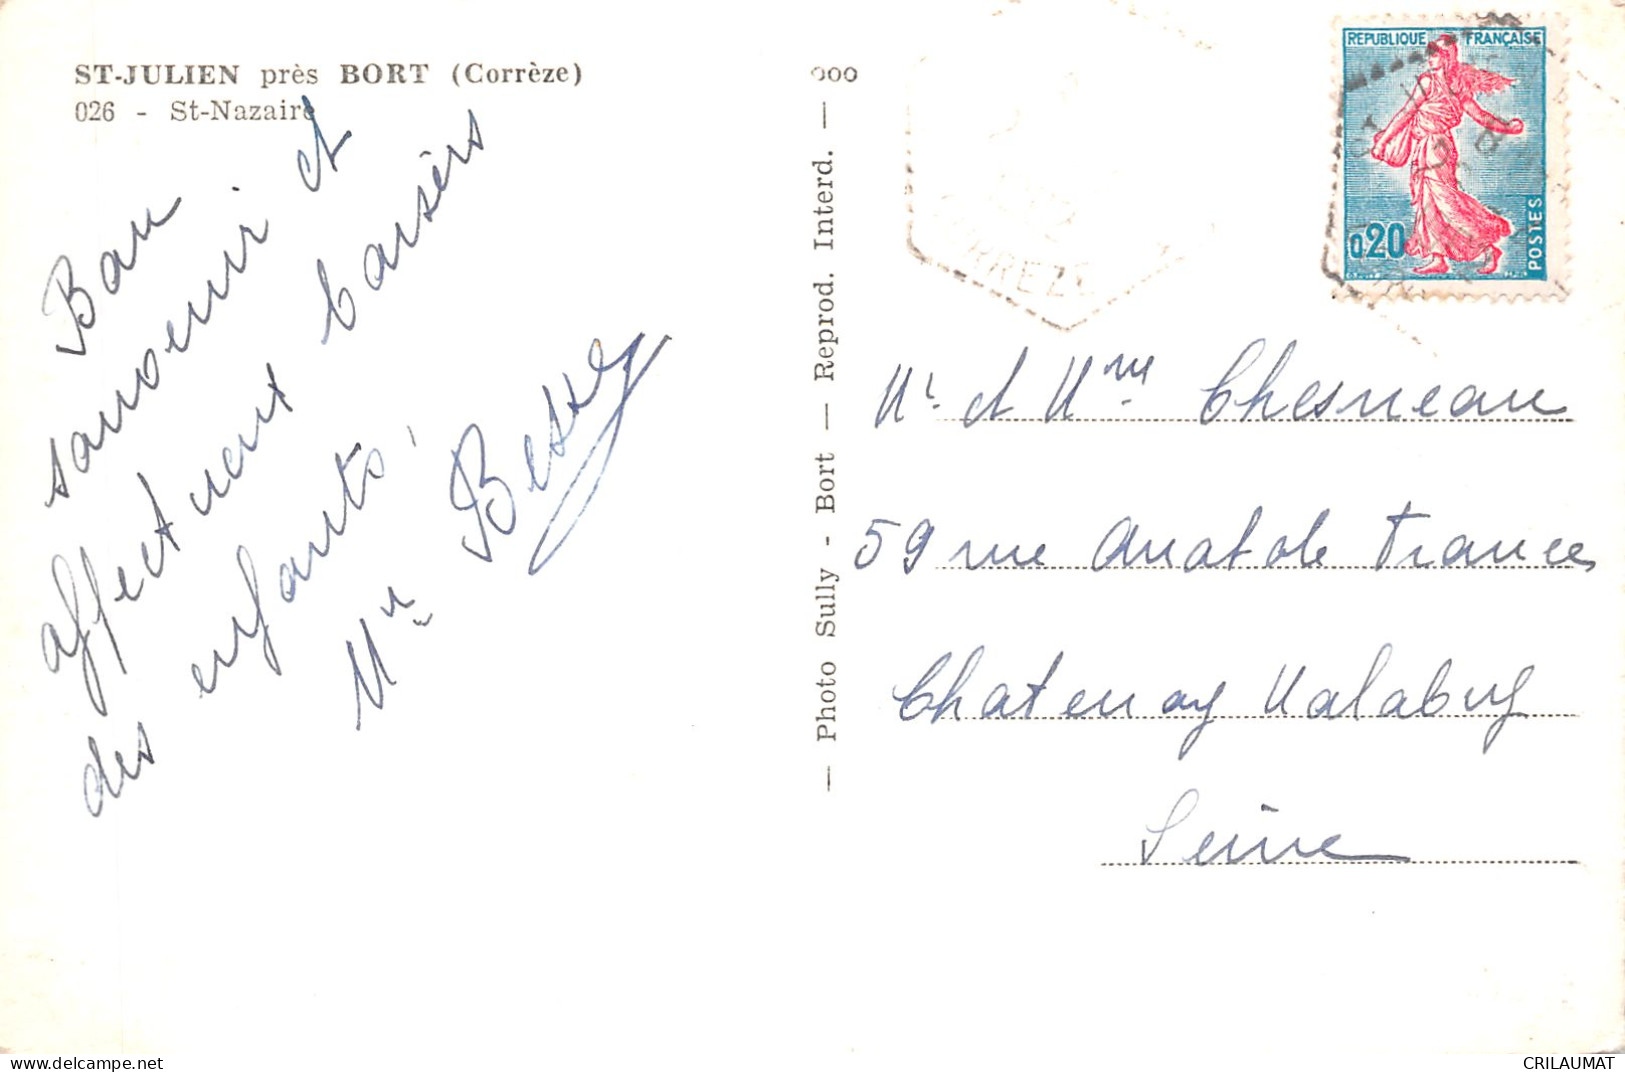 ST-JULIEN près BORT (Corrèze)
026 - St-Nazaire
Bon
souvenir et
affectueux baisers
des enfants.
Mme Bessy
— Photo Sully - Bort — Reprod. Interd. — 000
CORREZE
REPUBLIQUE FRANÇAISE
0,20
POSTES
Mr et Mme Chesneau
59 rue Anatole France
Chatenay Malabry
Seine
www.delcampe.net
CRILAUMAT